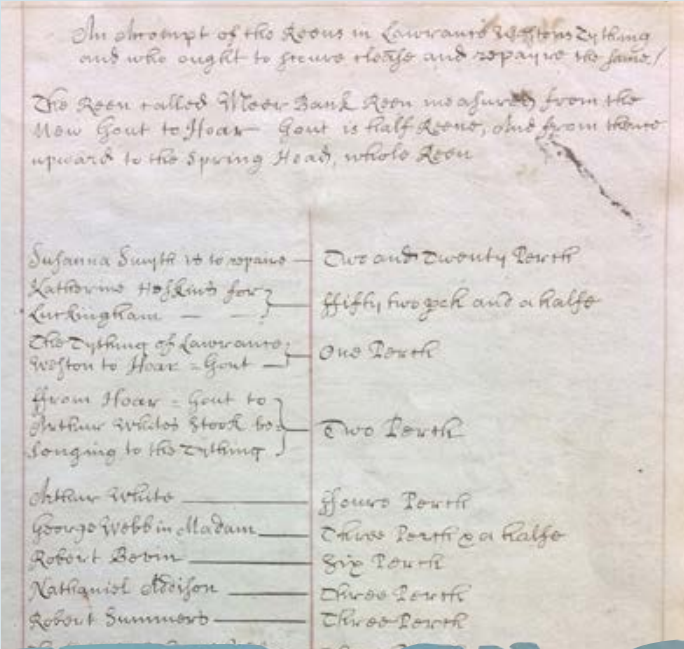 An Accompt of the Reens in Lawrance Westons Tything
and who ought to scoure clense and repayre the same /
The Reen called Meer Bank Reen measured from the
New Gout to Hoar Gout is half Reene, And from thence
upward to the Spring Head, whole Reen
Susanna Smyth is to repaire — Two and Twenty Perch
Katherine Hoskins for
Luckingham — — ffifty two pch and a halfe
The Tything of Lawrance
Weston to Hoar = Gout — One Perch
ffrom Hoar = Gout to
Arthur Whites be=
longing to the Tything Two Perch
Arthur White — ffoure Perch
George Webb in Madam — Three Perch & a halfe
Robert Bevin — Six Perch
Nathaniel Addison — Three Perch
Robert Summers — Three Perch